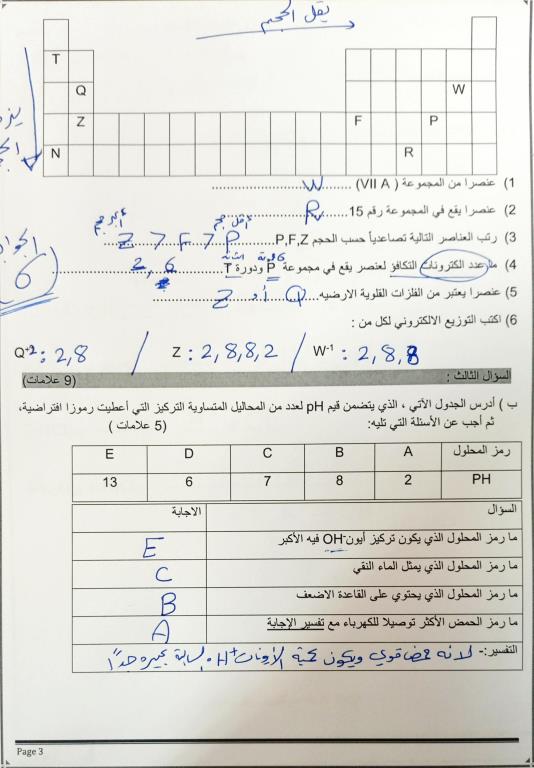 يقل الحجم
T
Q W
Z F P
N R
1) عنصرا من المجموعة ( VII A) W
2) عنصرا يقع في المجموعة رقم 15 R
أكبر حجم أقل حجم
3) رتب العناصر التالية تصاعدياً حسب الحجم P,F,Z Z > F > P
4) ما عدد الكترونات التكافؤ لعنصر يقع في مجموعة P ودورة T 2,6
(6)
5) عنصرا يعتبر من الفلزات القلوية الارضيه Q أو Z
6) اكتب التوزيع الالكتروني لكل من :
Q+2 : 2,8 / Z : 2,8,8,2 / W-1 : 2,8,8
السؤال الثالث : (9 علامات)
ب ) أدرس الجدول الآتي ، الذي يتضمن قيم pH لعدد من المحاليل المتساوية التركيز التي أعطيت رموزا افتراضية،
ثم أجب عن الأسئلة التي تليه: (5 علامات )
رمز المحلول A B C D E
PH 2 8 7 6 13
السؤال الاجابة
ما رمز المحلول الذي يكون تركيز أيون OH- فيه الأكبر E
ما رمز المحلول الذي يمثل الماء النقي C
ما رمز المحلول الذي يحتوي على القاعدة الاضعف B
ما رمز الحمض الأكثر توصيلا للكهرباء مع تفسير الإجابة A
التفسير:- لانه حمض قوي ويكون كمية الأيونات H+ والسالبة كبيرة جداً
Page 3